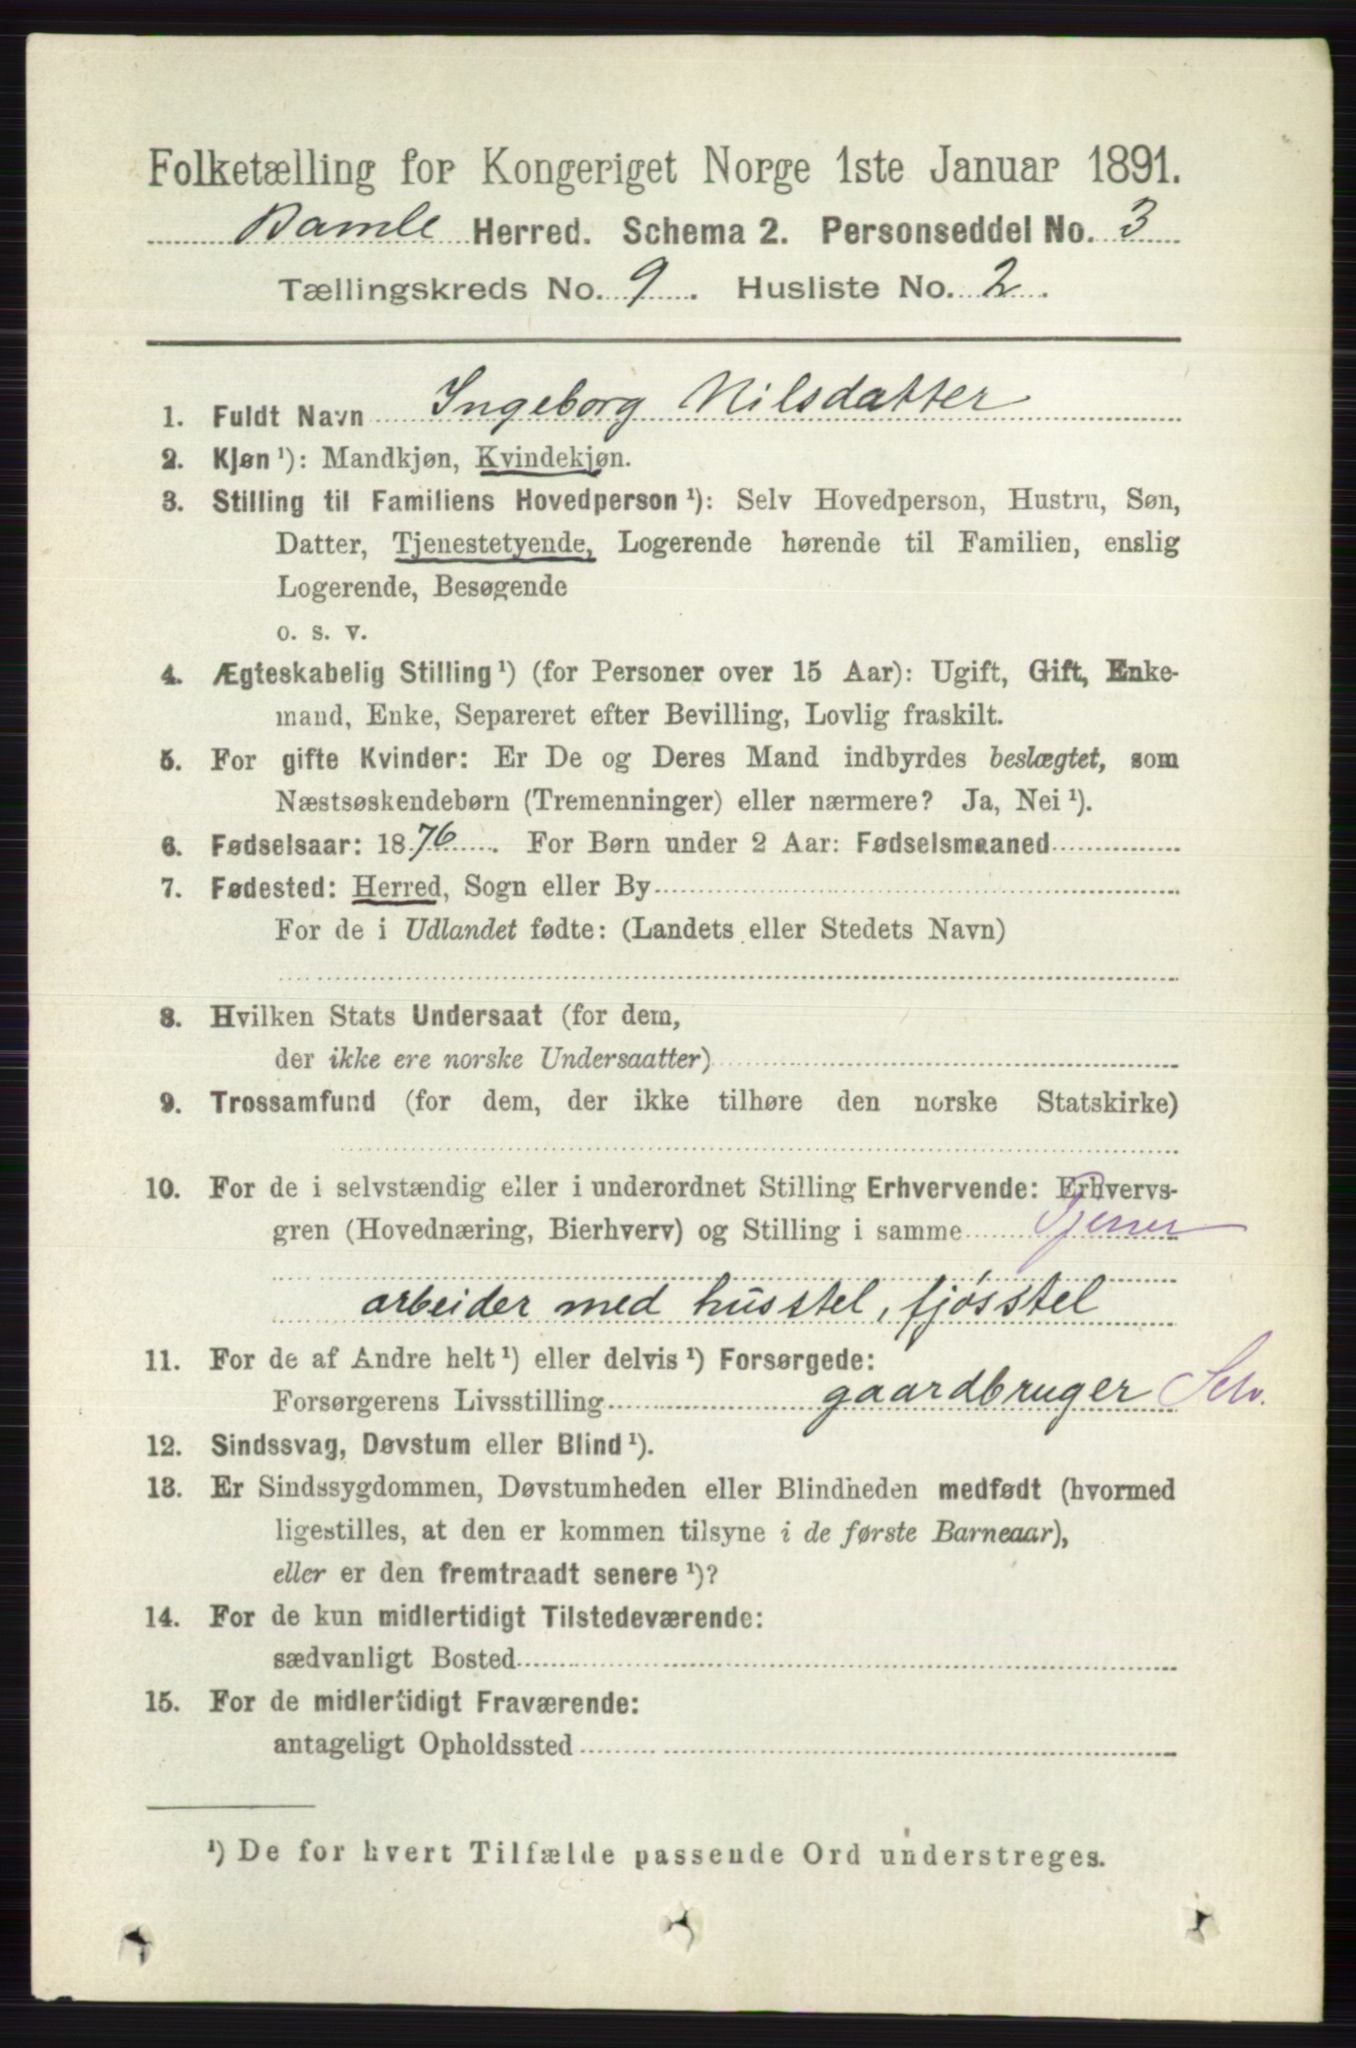 Folketælling for Kongeriget Norge 1ste Januar 1891.
Bamle Herred. Schema 2. Personseddel No. 3
Tællingskreds No. 9. Husliste No. 2.
1. Fuldt Navn Ingeborg Nilsdatter
2. Kjøn ¹): Mandkjøn, Kvindekjøn.
3. Stilling til Familiens Hovedperson ¹): Selv Hovedperson, Hustru, Søn,
Datter, Tjenestetyende, Logerende hørende til Familien, enslig
Logerende, Besøgende
o. s. v.
4. Ægteskabelig Stilling ¹) (for Personer over 15 Aar): Ugift, Gift, Enke-
mand, Enke, Separeret efter Bevilling, Lovlig fraskilt.
5. For gifte Kvinder: Er De og Deres Mand indbyrdes beslægtet, som
Næstsøskendebørn (Tremenninger) eller nærmere? Ja, Nei ¹).
6. Fødselsaar: 1876. For Børn under 2 Aar: Fødselsmaaned
7. Fødested: Herred, Sogn eller By
For de i Udlandet fødte: (Landets eller Stedets Navn)
8. Hvilken Stats Undersaat (for dem,
der ikke ere norske Undersaatter)
9. Trossamfund (for dem, der ikke tilhøre den norske Statskirke)
10. For de i selvstændig eller i underordnet Stilling Erhvervende: Erhvervs-
gren (Hovednæring, Bierhverv) og Stilling i samme Tjener
arbeider med husstel, fjøsstel
11. For de af Andre helt ¹) eller delvis ¹) Forsørgede:
Forsørgerens Livsstilling gaardbruger Selv.
12. Sindssvag, Døvstum eller Blind ¹).
13. Er Sindssygdommen, Døvstumheden eller Blindheden medfødt (hvormed
ligestilles, at den er kommen tilsyne i de første Barneaar),
eller er den fremtraadt senere ¹)?
14. For de kun midlertidigt Tilstedeværende:
sædvanligt Bosted
15. For de midlertidigt Fraværende:
antageligt Opholdssted
¹) De for hvert Tilfælde passende Ord understreges.